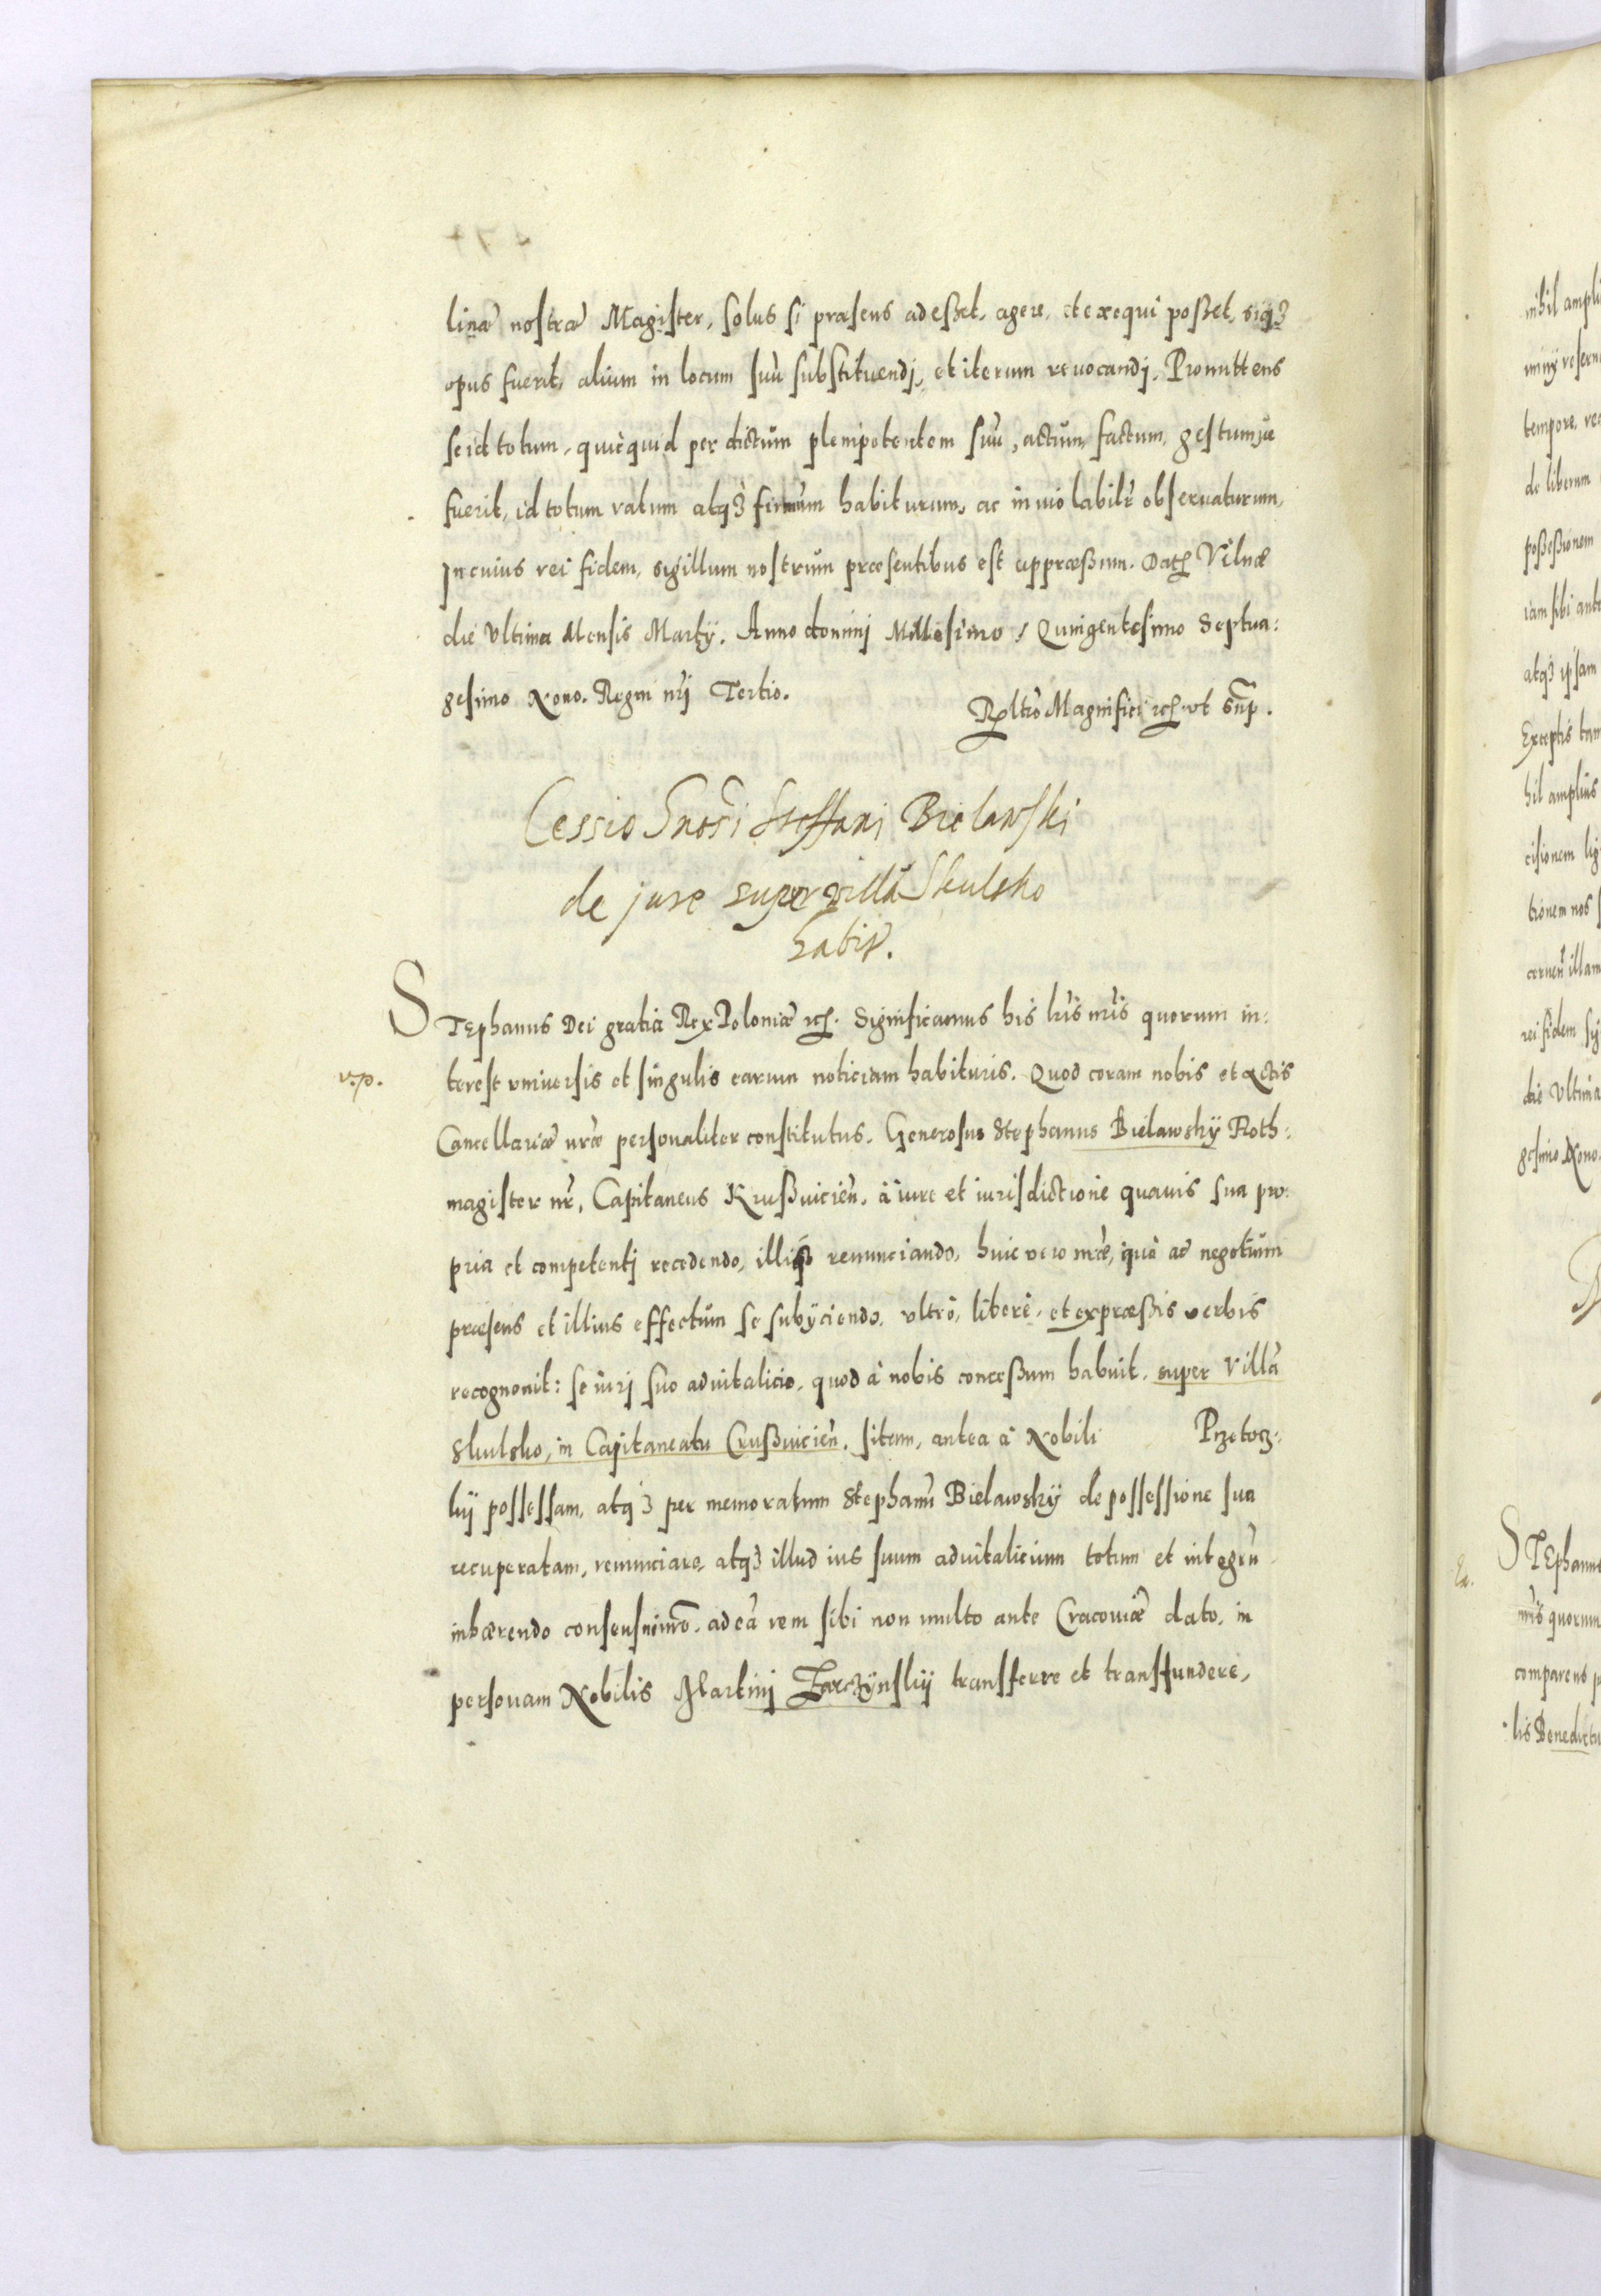 linæ nostræ Magister, solus si præsens adeßet, agere, et exequi poßet, siqʒ
opus fuerit, alium in locum suū substituendj, et iterum reuocandj. Promittens
se id totum, quicquid per dictum plenipotentem suū, actum, factum, gestumue
fuerit, id totum ratum atqʒ firmum habiturum, ac inuiolabilr̄ obseruaturum,
In cuius rei fidem, sigillum nostrum præsentibus est appræßum. Dat Vilnæ
die Vltima Mensis Martÿ. Anno dominj Millesimo, Quingentesimo Septua:
gesimo Nono. Regni nr̄j Tertio.
Rltio Magnifici etc. vt sup̄.
Cessio Gnōsi Steffani Bielawski
de jure super villā Skulsko
habit.
STephanus Dei gratia Rex Poloniæ etc. Significamus his lr̄is nr̄is quorum in:
v.p.
terest vniuersis et singulis earum noticiam habituris. Quod coram nobis et actis
Cancellariæ nr̄æ personaliter constitutus. Generosus Stephanus Bielawskÿ Roth:
magister nr̄, Capitaneus Krußuicien̄. à iure et iurisdictione quauis sua pro:
pria et competentj recedendo, illiqʒ renunciando, huic vero nr̄æ, quo ad negotium
præsens et illius effectum se subÿciendo, vltro, libere, et expræßis verbis
recognouit: se iurj suo aduitalicio, quod à nobis conceßum habuit, super Villā
Skulsko, in Capitaneatu Crußuicien̄. sitam, antea à Nobili Przetocz:
kÿ possessam, atqʒ per memoratum Stephanū Bielawskÿ de possessione sua
recuperatam, renunciare, atqʒ illud ius suum aduitalicium totum et integrū
inhærendo consensui nr̄o, ad eā rem sibi non multo ante Cracouiæ dato, in
personam Nobilis Martinj Barczÿnskÿ transferre et transfundere,